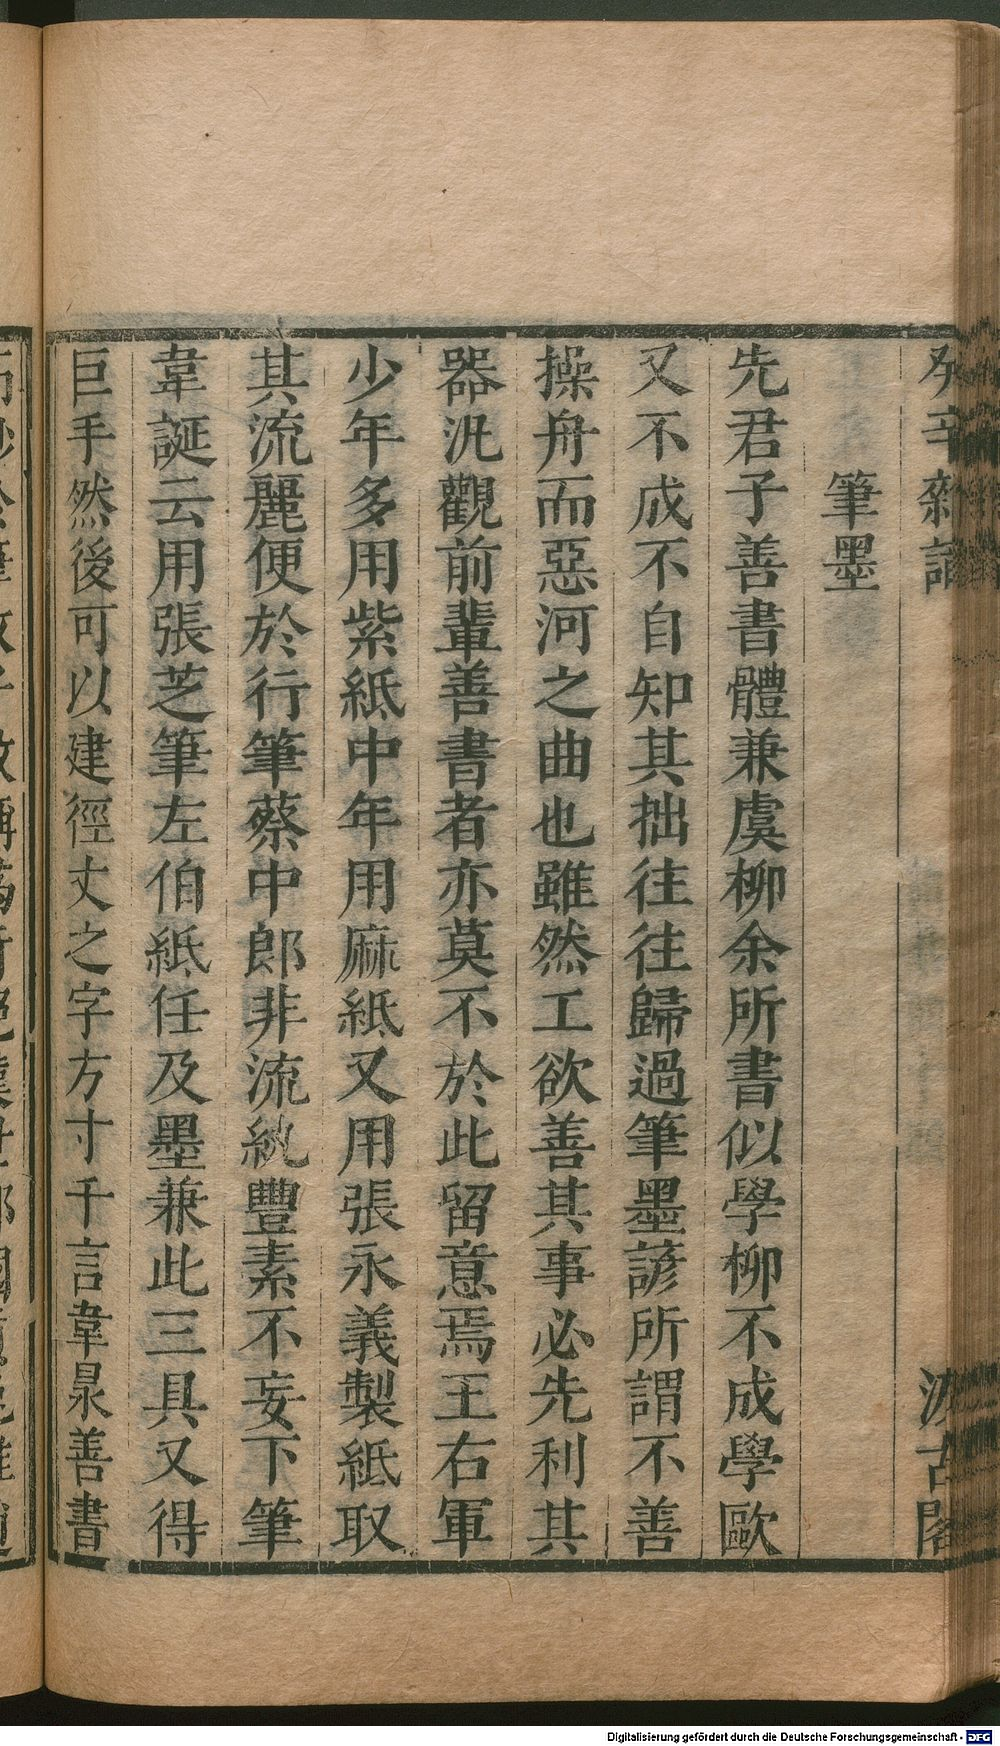 癸辛雜識
汲古閣
筆墨
先君子善書體兼虞柳余所書似學柳不成學歐
又不成不自知其拙往往歸過筆墨諺所謂不善
操舟而惡河之曲也雖然工欲善其事必先利其
器汎觀前輩善書者亦莫不於此留意焉王右軍
少年多用紫紙中年用麻紙又用張永義製紙取
其流麗便於行筆蔡中郎非流紈豐素不妄下筆
韋誕云用張芝筆左伯紙任及墨兼此三具又得
巨手然後可以建徑丈之字方寸千言韋㫤善書
Digitalisierung gefördert durch die Deutsche Forschungsgemeinschaft - DFG